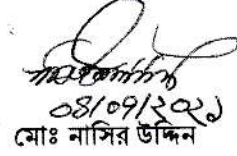 ০৪/০৭/২০২১
মোঃ নাসির উদ্দিন